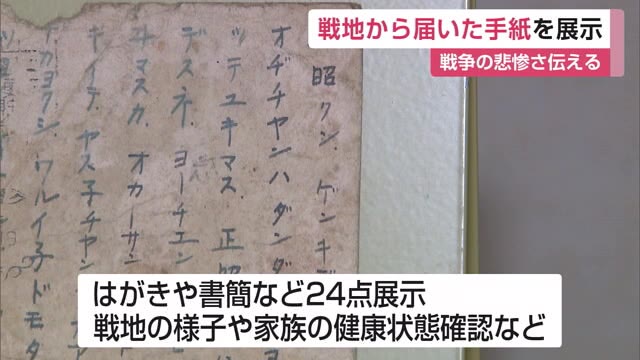 戦地から届いた手紙を展示
戦争の悲惨さ伝える
昭クン ゲンキ
オヂチヤンハダンダ
ツテユキマス 正
デスネ ヨーチエン
マスカ オカーサン
キイテ ヤス子チヤン
カヨクシ ワルイ子ドモタ
はがきや書簡など24点展示
戦地の様子や家族の健康状態確認など